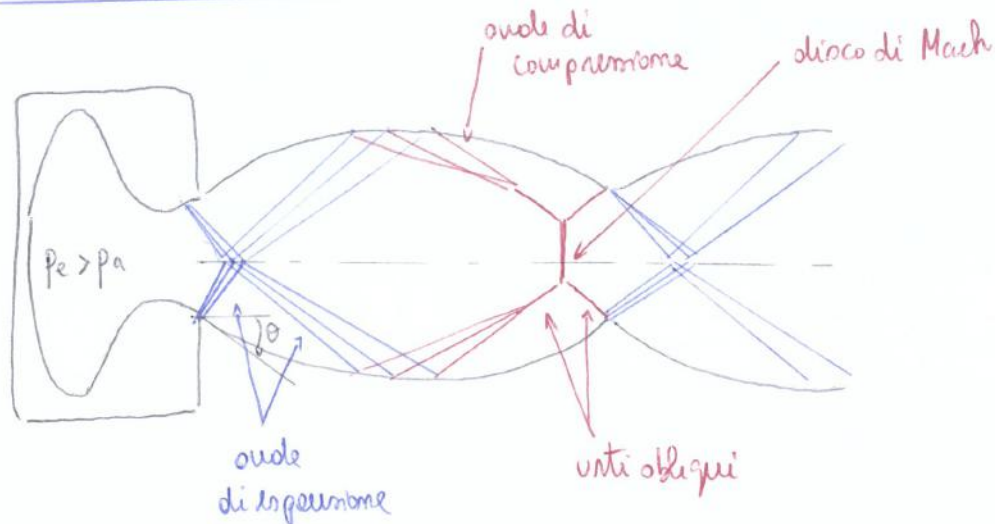 onde di
compressione
disco di Mach
pe > pa
θ
onde
di espansione
urti obliqui